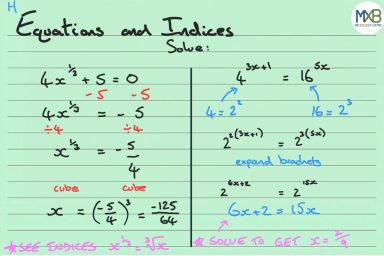 H
MXB
Equations and Indices
Solve:
4x^(1/3) + 5 = 0
-5 -5
4x^(1/3) = -5
÷4 ÷4
x^(1/3) = -5/4
cube cube
x = (-5/4)³ = -125/64
* SEE INDICES x^(1/3) = ³√x
4^(3x+1) = 16^(5x)
4 = 2² 16 = 2³
2^(2(3x+1)) = 2^(3(5x))
expand brackets
2^(6x+2) = 2^(15x)
6x+2 = 15x
* SOLVE TO GET x = 2/9